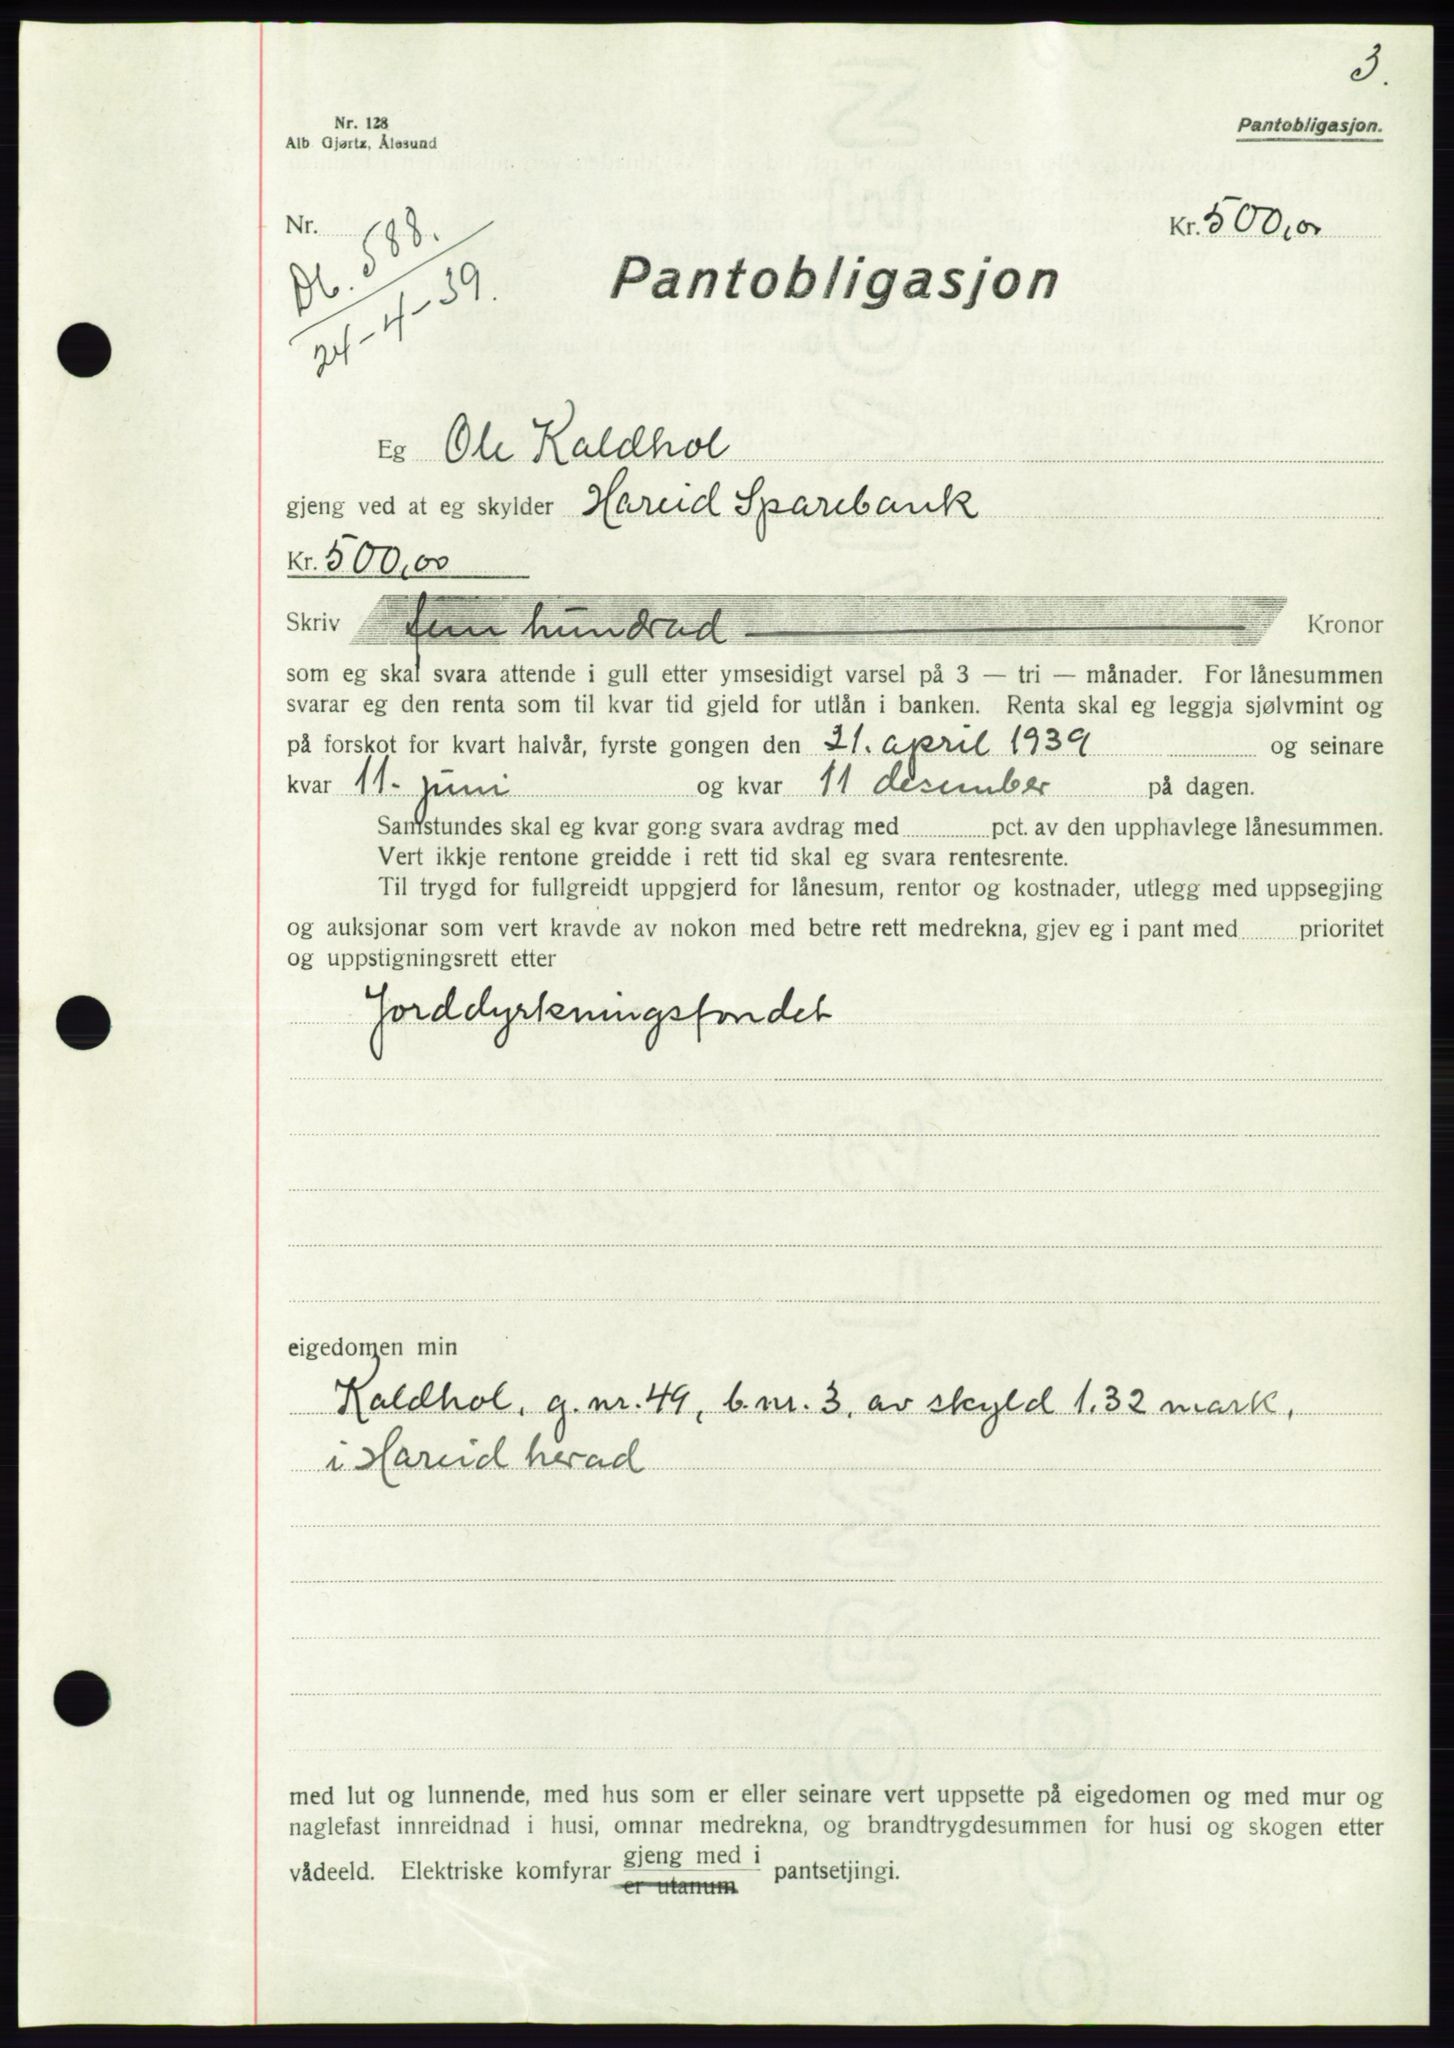 3.
Nr. 128
Alb Gjørtz, Ålesund
Pantobligasjon.
Nr.
Kr. 500,00
Db. 588.
24-4-39.
Pantobligasjon
Eg Ole Kaldhol
gjeng ved at eg skylder Hareid Sparebank
Kr. 500,00
Skriv fem hundrad Kronor
som eg skal svara attende i gull etter ymsesidigt varsel på 3 — tri — månader. For lånesummen
svarar eg den renta som til kvar tid gjeld for utlån i banken. Renta skal eg leggja sjølvmint og
på forskot for kvart halvår, fyrste gongen den 21. april 1939 og seinare
kvar 11. juni og kvar 11 desember på dagen.
Samstundes skal eg kvar gong svara avdrag med pct. av den upphavlege lånesummen.
Vert ikkje rentone greidde i rett tid skal eg svara rentesrente.
Til trygd for fullgreidt uppgjerd for lånesum, rentor og kostnader, utlegg med uppsegjing
og auksjonar som vert kravde av nokon med betre rett medrekna, gjev eg i pant med prioritet
og uppstigningsrett etter
Jorddyrkningsfondet
eigedomen min
Kaldhol, g.nr. 49, b.nr. 3, av skyld 1.32 mark,
i Hareid herad
med lut og lunnende, med hus som er eller seinare vert uppsette på eigedomen og med mur og
naglefast innreidnad i husi, omnar medrekna, og brandtrygdesummen for husi og skogen etter
vådeeld. Elektriske komfyrar gjeng med i pantsetjingi.
er utanum